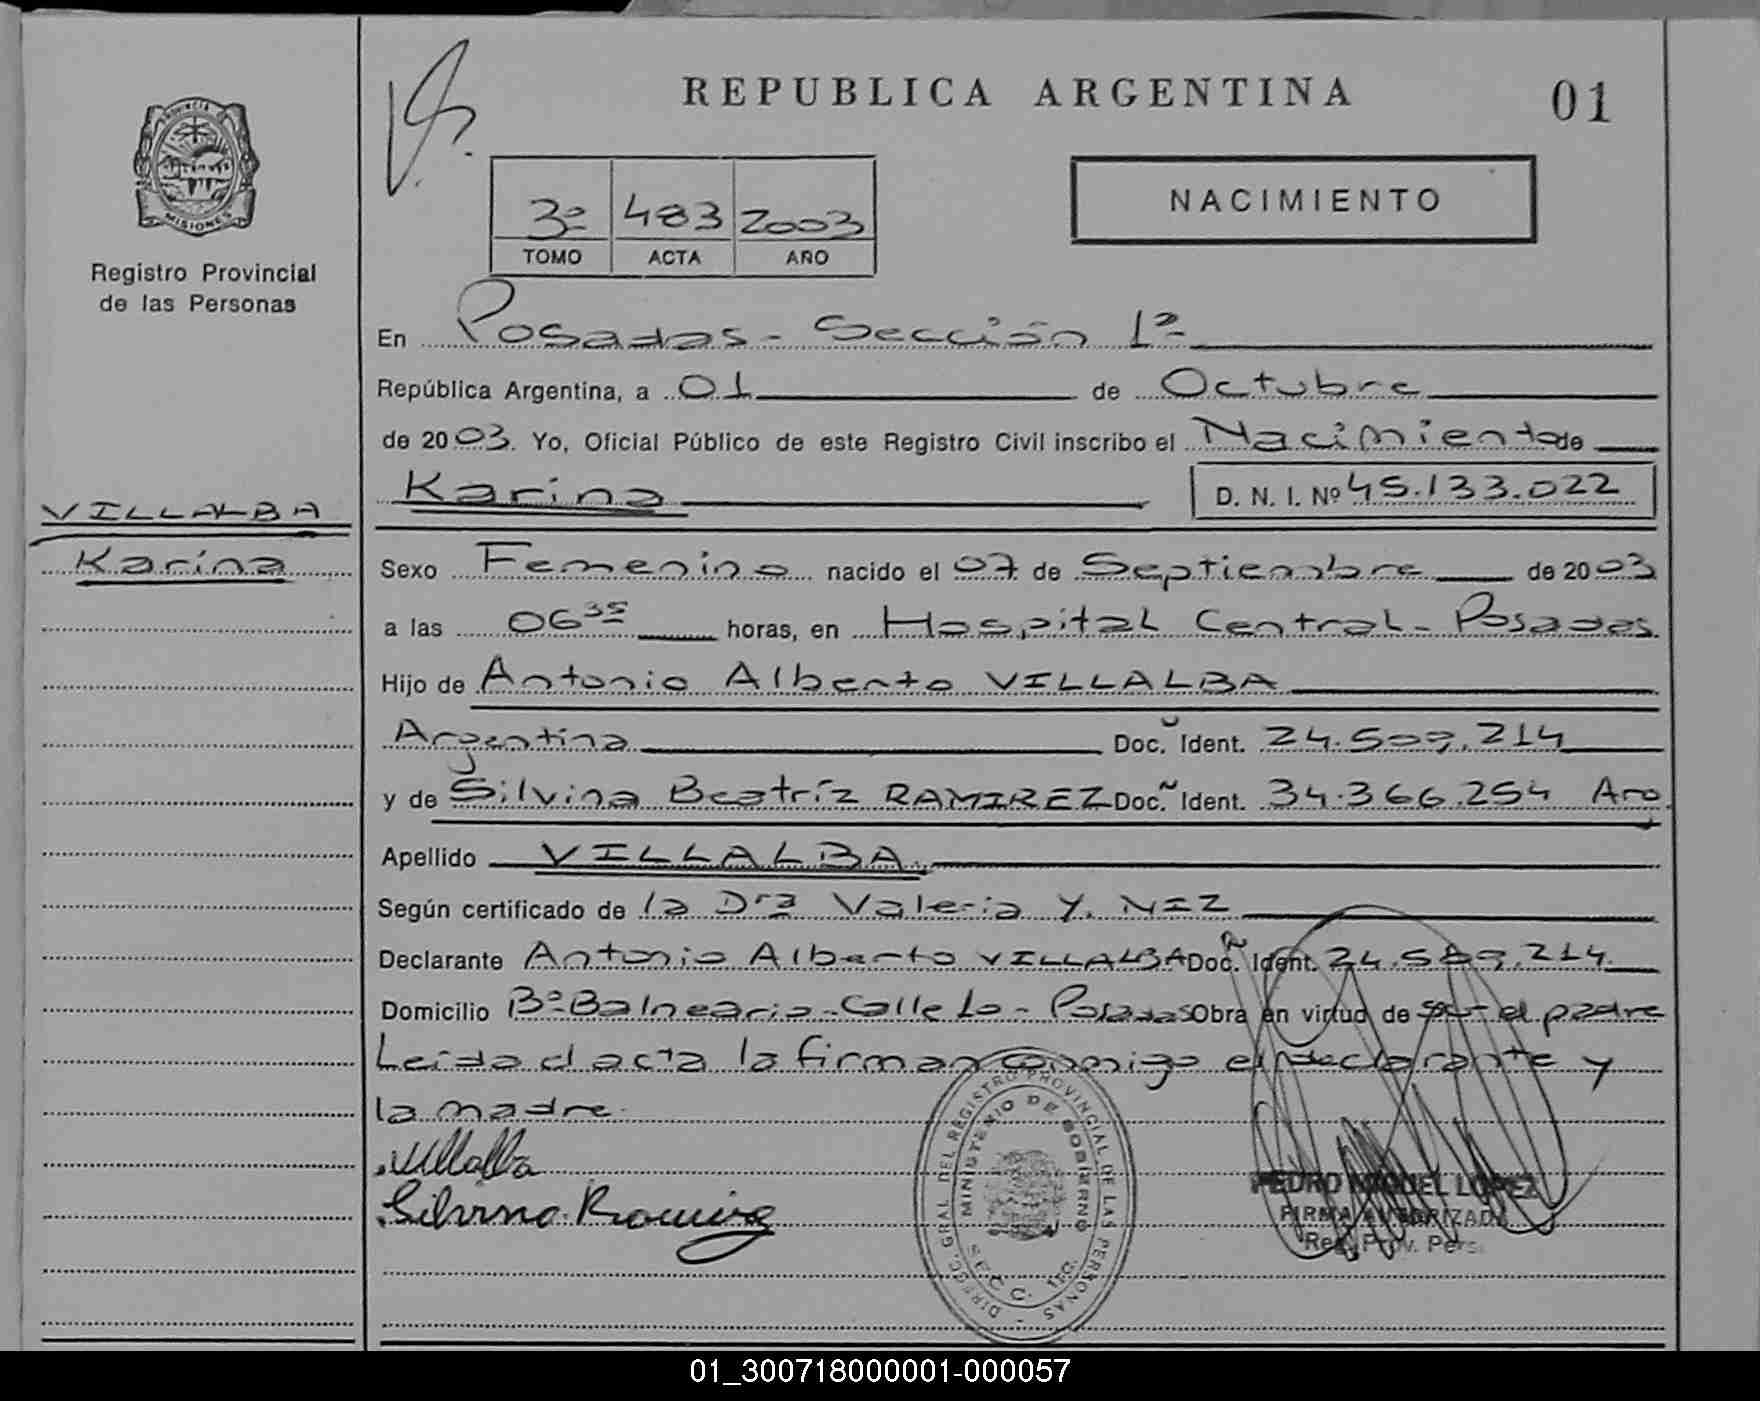 REPUBLICA ARGENTINA
01
PROVINCIA
MISIONES
Registro Provincial
de las Personas
NACIMIENTO
3º 483 2003
TOMO ACTA AÑO
En Posadas - Sección 1ª
República Argentina, a 01 de Octubre
de 2003. Yo, Oficial Público de este Registro Civil inscribo el Nacimiento de
Karina D. N. I. Nº 45.133.022
VILLALBA
Karina
Sexo Femenino nacido el 07 de Septiembre de 2003
a las 06 35 horas, en Hospital Central - Posadas.
Hijo de Antonio Alberto VILLALBA
Argentina Doc. Ident. 24.509.214
y de Silvina Beatríz RAMIREZ Doc. Ident. 34.366.254 Arg.
Apellido VILLALBA
Según certificado de la Dra Valeria Y. NIZ
Declarante Antonio Alberto VILLALBA Doc. Ident. 24.509.214
Domicilio Bº Balneario - Calle Lo - Posadas Obra en virtud de ser el padre
Leida el acta la firman conmigo el declarante y
la madre.
Villalba
Silvina Ramirez
DIREC. GRAL. DEL REGISTRO PROVINCIAL DE LAS PERSONAS
MINISTERIO DE GOBIERNO
SECC. 1RO.
PEDRO MIGUEL LOPEZ
FIRMA AUTORIZADA
Reg. Prov. Pers.
01_300718000001-000057